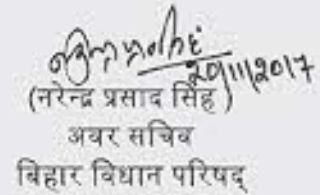 20/11/2017
(नरेन्द्र प्रसाद सिंह)
अवर सचिव
बिहार विधान परिषद्